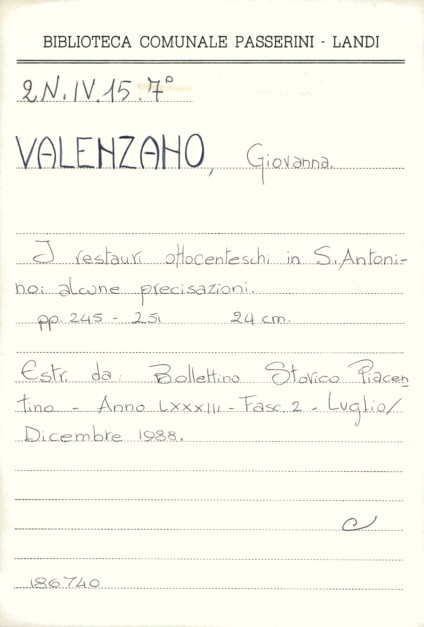 BIBLIOTECA COMUNALE PASSERINI - LANDI
2N.IV.15.7°
VALENZANO, Giovanna.
I restauri ottocenteschi in S.Antoni-
no: alcune precisazioni.
pp. 245 - 251 24 cm.
Estr. da: Bollettino Storico Piacen
tino - Anno LXXXIII - Fasc. 2 - Luglio/
Dicembre 1988.
C
186740